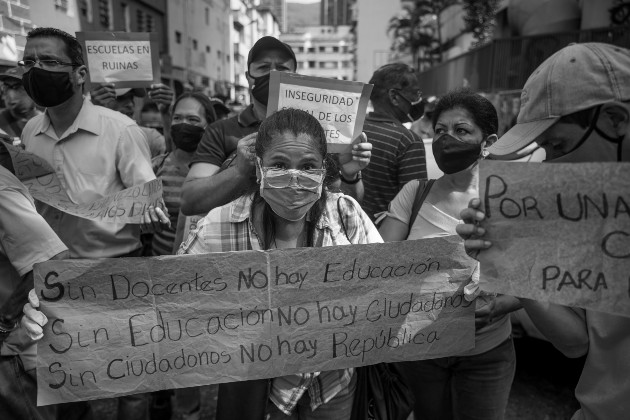 ESCUELAS EN
RUINAS
INSEGURIDAD
DE LOS
Sin Docentes No hay Educación
Sin Educación No hay Ciudadanos
Sin Ciudadonos No hay República
POR UNA
PARA